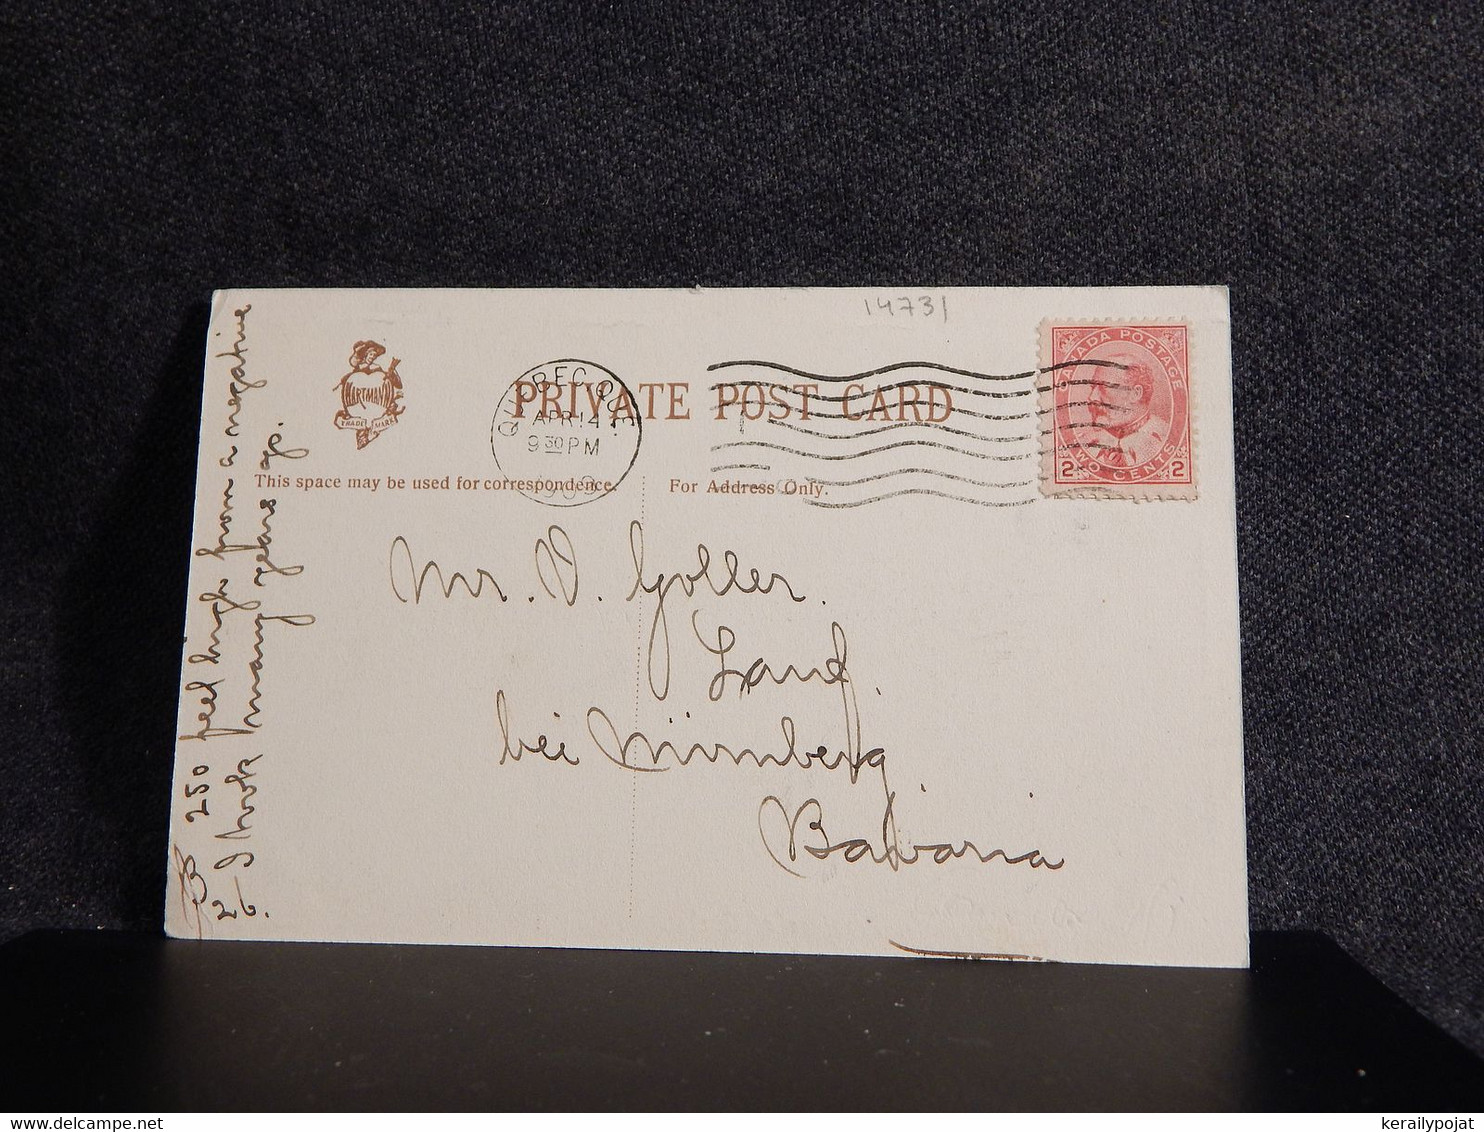 14731
HARTMANN
TRADE MARK
PRIVATE POST CARD
QUEBEC QUE.
APR 14
9 30 PM
CANADA POSTAGE
2 TWO CENTS 2
This space may be used for correspondence.
For Address Only.
250 feet high from a negative
I took many years ago.
Mr. V. Goller.
Lauf.
bei Nürnberg
Bavaria
kerailypojat
www.delcampe.net